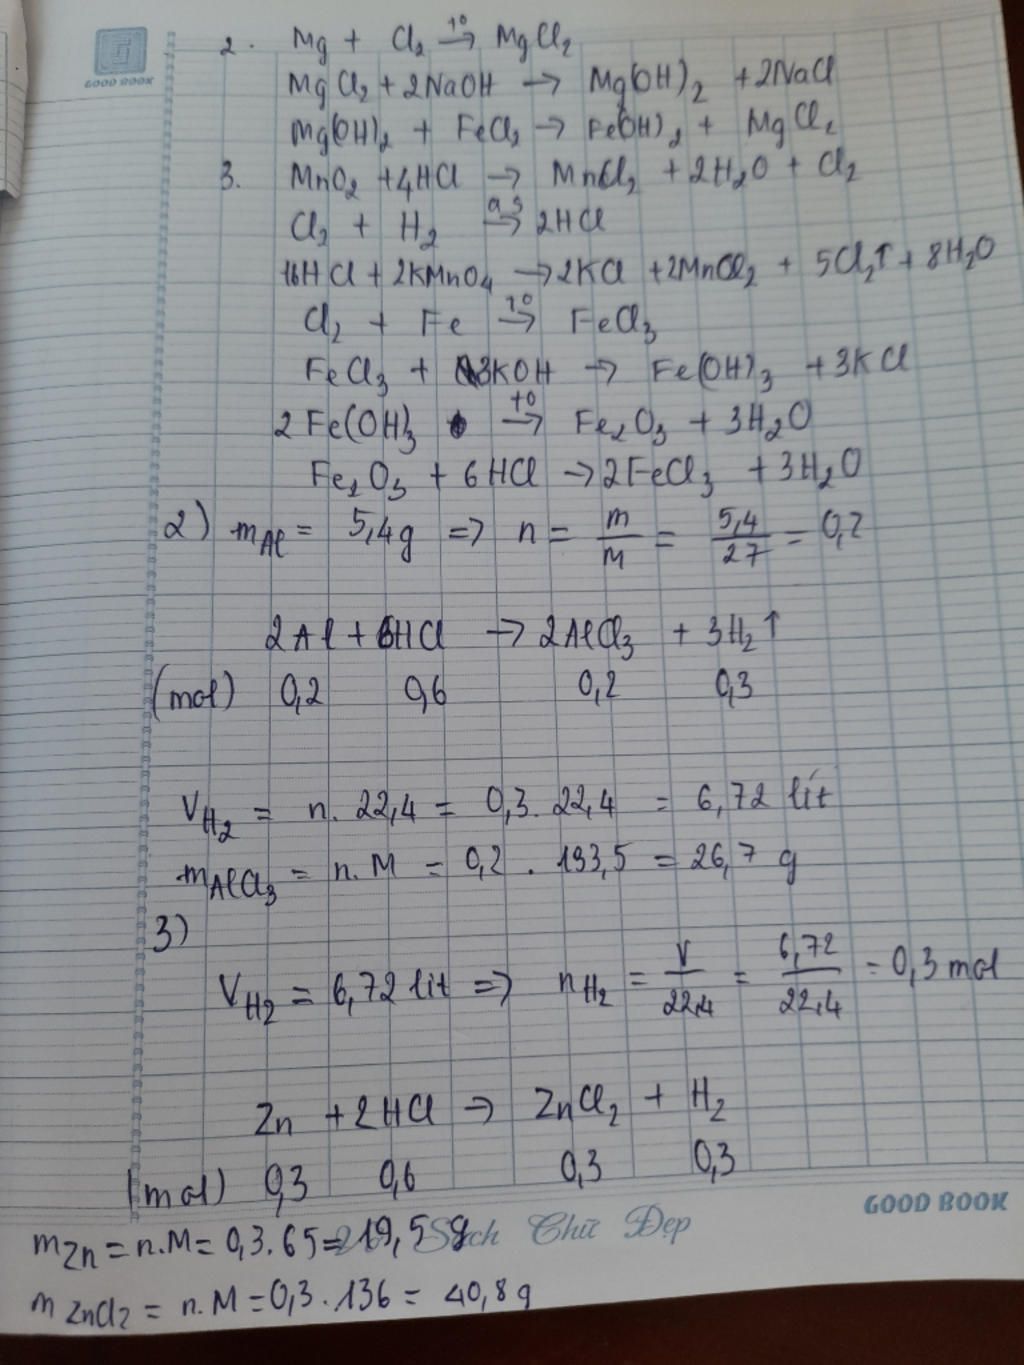 GOOD BOOK
2. Mg + Cl₂ →(t⁰) MgCl₂
MgCl₂ + 2NaOH → Mg(OH)₂ + 2NaCl
Mg(OH)₂ + FeCl₂ → Fe(OH)₂ + MgCl₂
3. MnO₂ + 4HCl → MnCl₂ + 2H₂O + Cl₂
Cl₂ + H₂ →(as) 2HCl
16HCl + 2KMnO₄ → 2KCl + 2MnCl₂ + 5Cl₂↑ + 8H₂O
Cl₂ + Fe →(t⁰) FeCl₃
FeCl₃ + 3KOH → Fe(OH)₃ + 3KCl
2Fe(OH)₃ →(t⁰) Fe₂O₃ + 3H₂O
Fe₂O₃ + 6HCl → 2FeCl₃ + 3H₂O
2) mAl = 5,4g => n = m/M = 5,4/27 = 0,2
2Al + 6HCl → 2AlCl₃ + 3H₂↑
(mol) 0,2 0,6 0,2 0,3
VH₂ = n. 22,4 = 0,3. 22,4 = 6,72 lít
mAlCl₃ = n.M = 0,2 . 133,5 = 26,7 g
3)
VH₂ = 6,72 lít => nH₂ = V/22,4 = 6,72/22,4 = 0,3 mol
Zn + 2HCl → ZnCl₂ + H₂
(mol) 0,3 0,6 0,3 0,3
GOOD BOOK
mZn = n.M = 0,3.65 = 19,5 g Sách Chữ Đẹp
mZnCl₂ = n.M = 0,3.136 = 40,8g